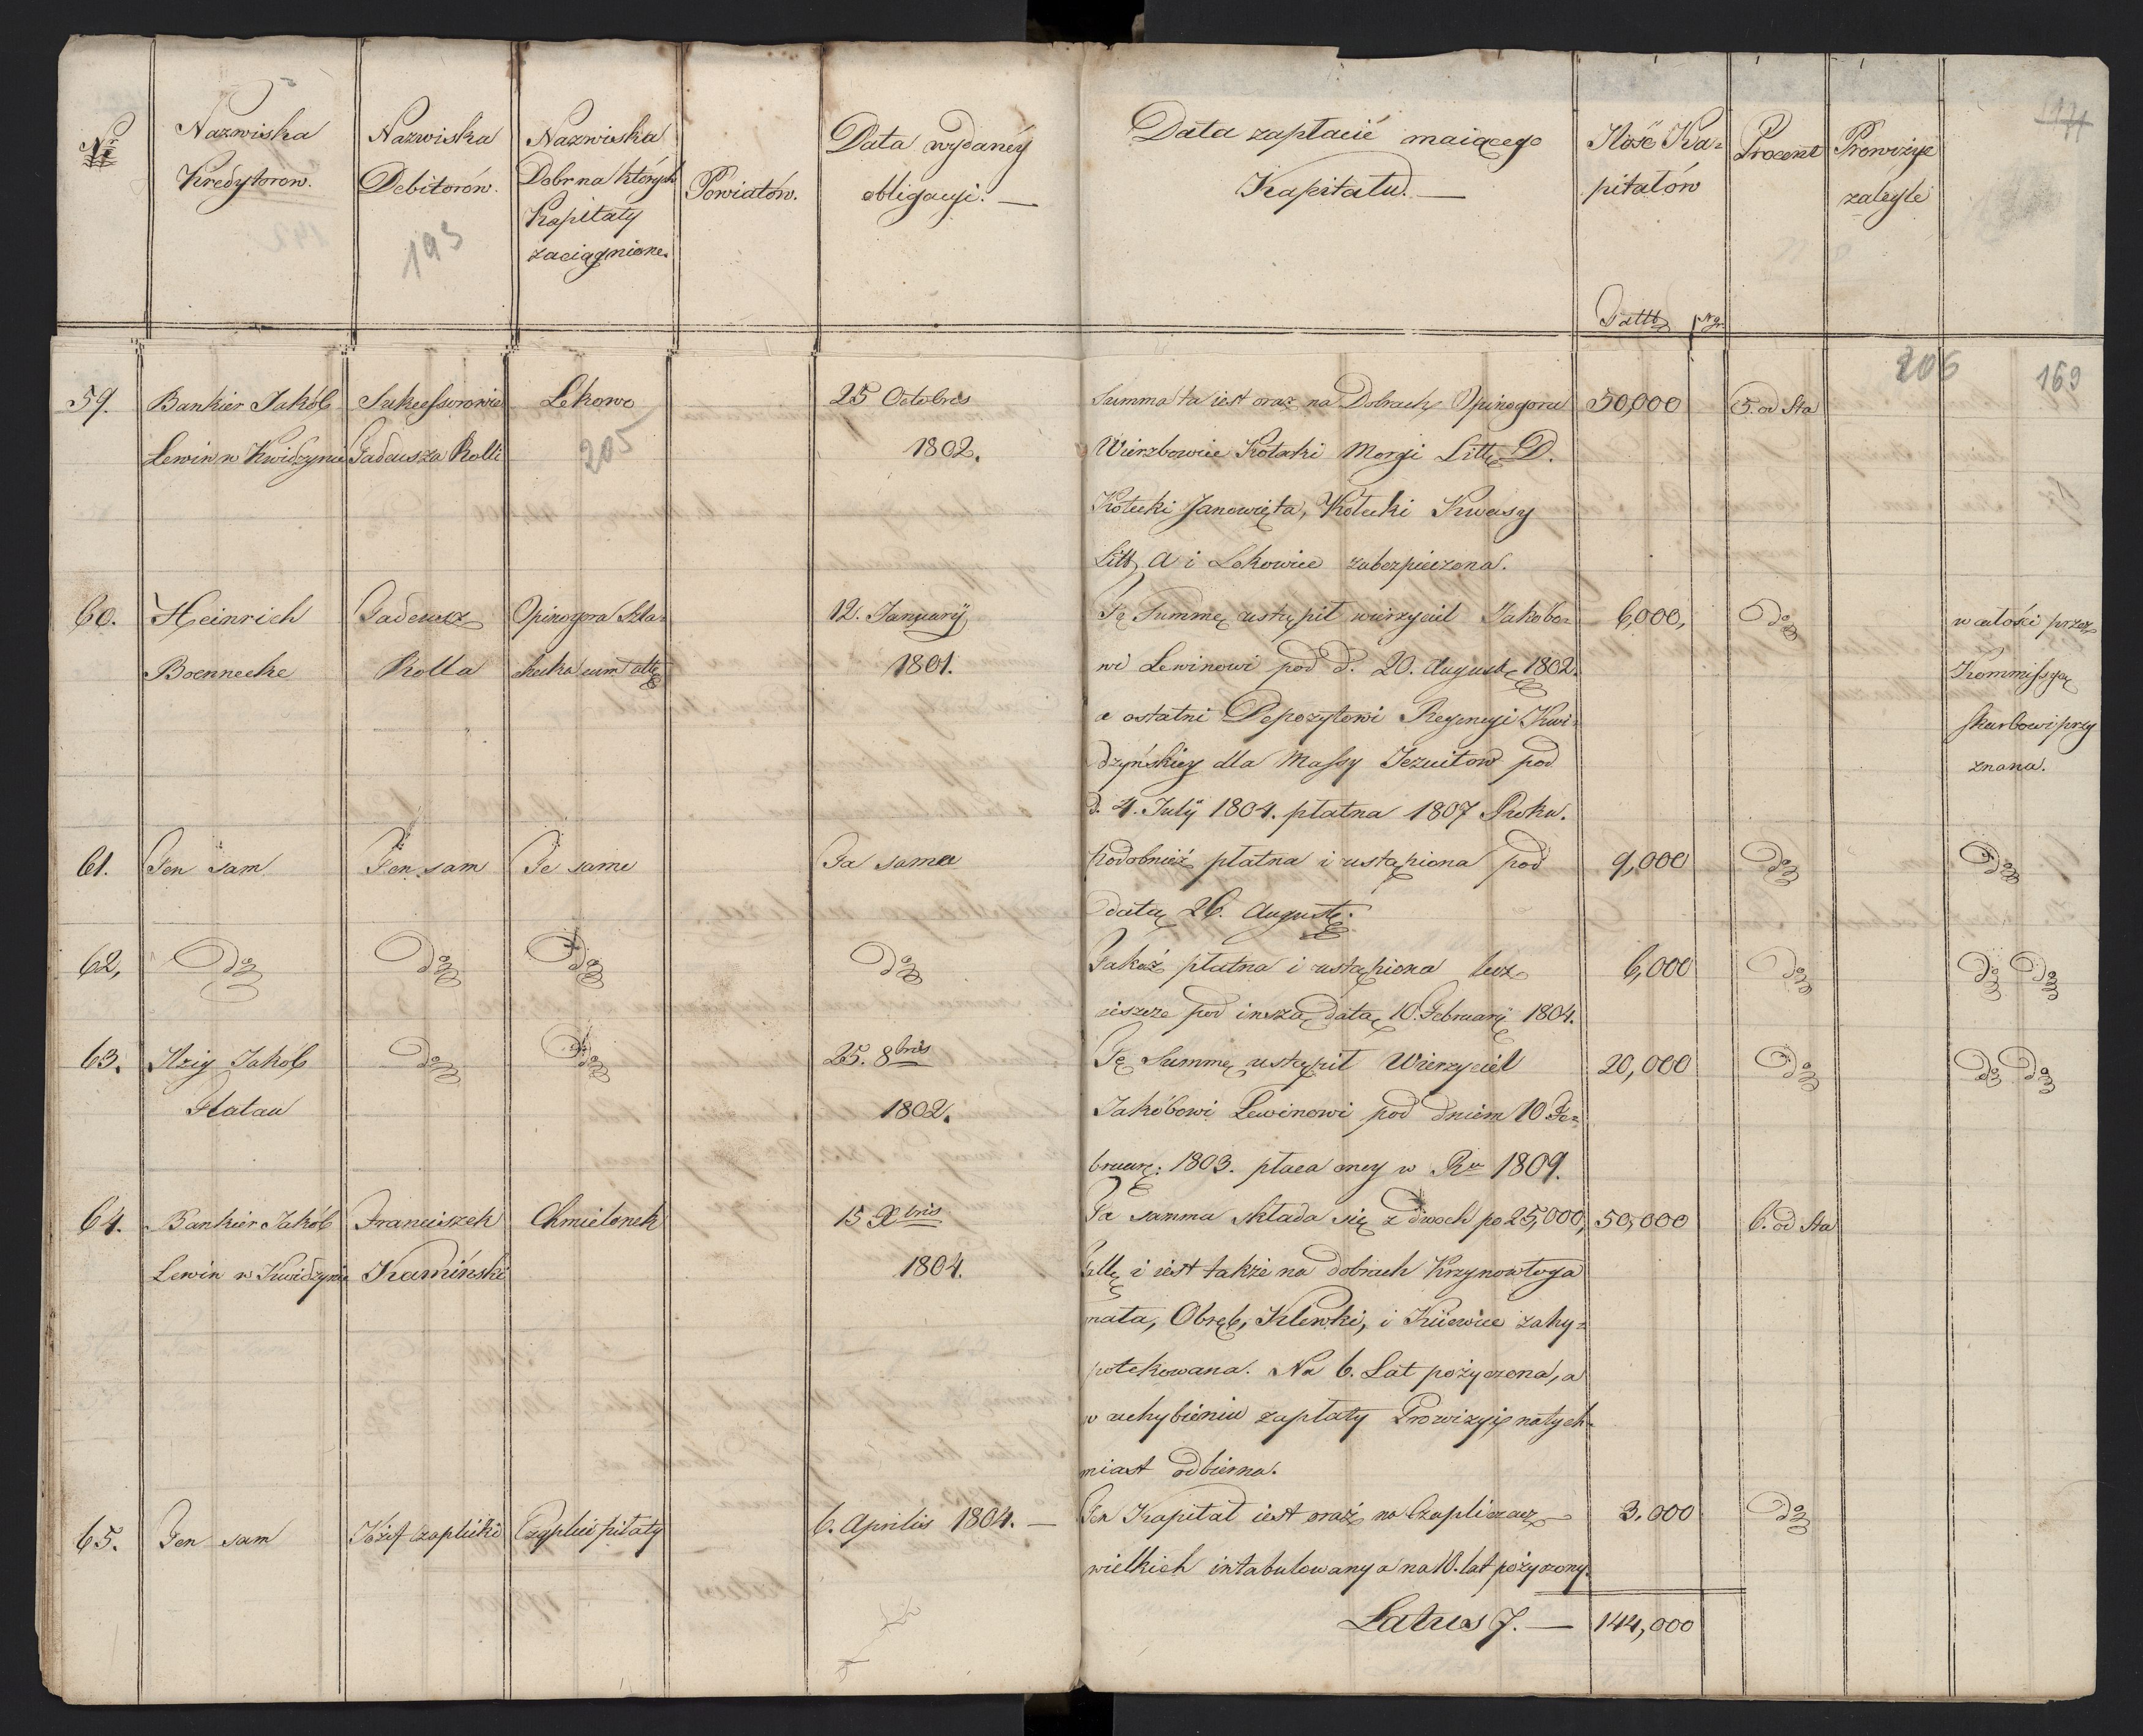 Nr
Nazwiska
Kredytorow.
Nazwiska
Debitorów.
193
Nazwiska
Dobr na których
Kapitały
zaciągnione.
Powiatów.
Data wydanéy
obligacyi. —
Data zapłacić maiącego
Kapitału. —
Ilość Ka=
pitałów
Procent
Prowizye
zaległe
171
206
169
59.
Bankier Jakób
Lewin w Kwidzynie
Sukcessorowie
Tadeusza Rolli
Lekowo
205
25 Octobris
1802.
Summa ta iest oraz na Dobrach Opinogora
Wierzbowie Kołaki Morgi Litt. D.
Kołacki Janowięta, Kołacki Kwasy
Litt. A i Lekowie zabezpieczona.
50,000
5. od Sta
60.
Heinrich
Boennecke
Tadeusz
Rolla
Opinogora Szla=
checka cum att.
12. Januarÿ
1801.
Tę Summę ustąpił wierzyciel Jakobo=
wi Lewinowi pod d. 20. August. 1802.
a ostatni Depozytowi Regencyi Kwi=
dzyńskiey dla Massy Jezuitow pod
d. 4. July 1804. płatna 1807 Roku.
6,000,
do
w całości przez
Kommissyą
skarbowi przy
znana.
61.
Ten sam
Ten sam
Te same
Ta sama
Podobnież płatna i ustąpiona pod
datą 26. August.
9,000
do
do
62,
do
do
do
do
Takaż płatna i ustąpiona lecz
ieszcze pod inszą datą 10. Februarÿ 1804.
6,000
do
do do
63.
Itzig Jakób
Flatau
do
do
25. 8bris
1802.
Tę Summę ustąpił Wierzyciel
Jakóbowi Lewinowi pod dniem 10 Fe=
bruar. 1803. płaca oney w Ru 1809.
20,000
do
do do
64.
Bankier Jakób
Lewin w Kwidzynie
Franciszek
Kamiński
Chmielonek
15 Xbris
1804.
Ta summa składa się z dwoch po 25,000,
tall. i iest także na dobrach Krzynowłoga
mała, Obręb, Klewki, i Kiiewice zahy=
potekowana. Na 6. Lat pożyczona, a
w uchybieniu zapłaty Prowizyi natych=
miast odbierna.
50,000
6. od Sta
65.
Ten sam
Józef Czaplicki
Czaplice piłaty
6. Aprilis 1804. —
Ten Kapitał iest oraz na Czaplicach
wielkich intabulowany a na 10. lat pożyczony.
3.000
do
Latus 7. — 144,000